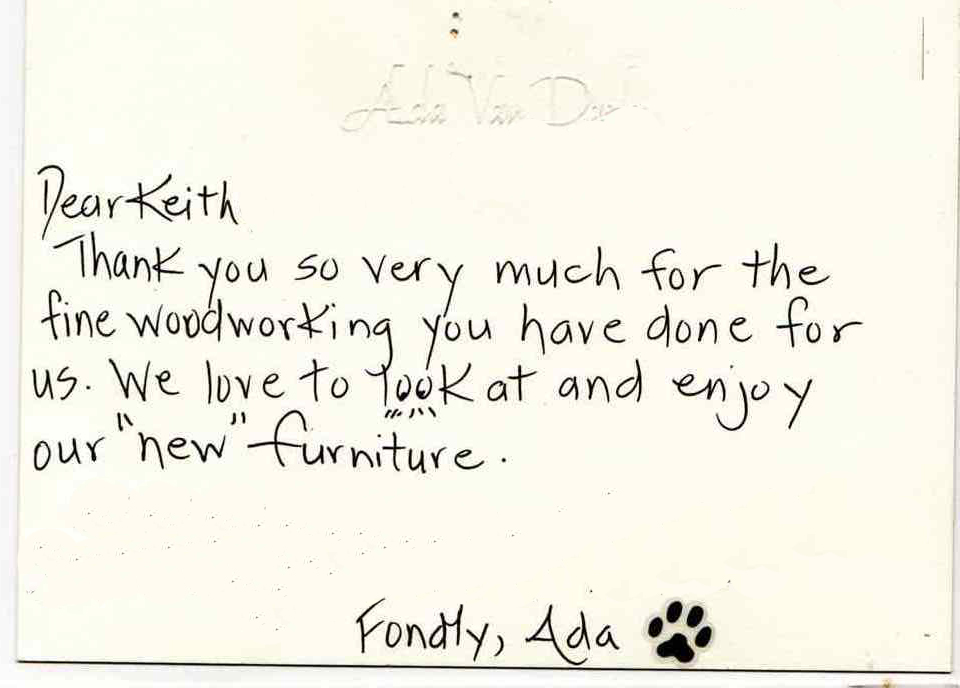 Ada Van
Dear Keith
Thank you so very much for the
fine woodworking you have done for
us. We love to look at and enjoy
our "new" furniture.
Fondly, Ada